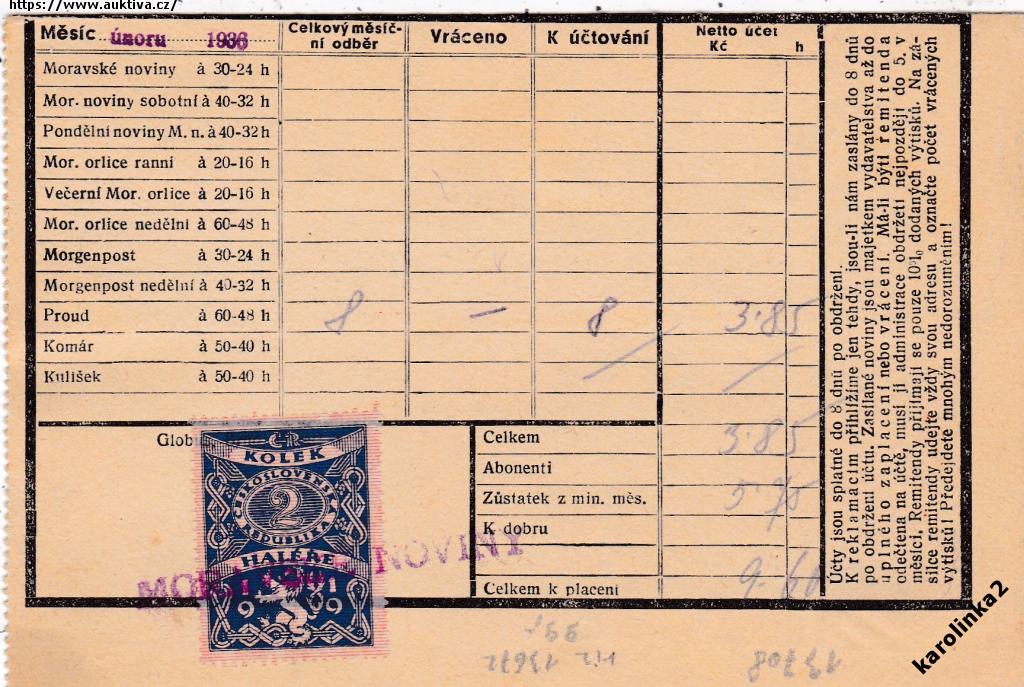 https://www.auktiva.cz/
Měsíc únoru 1936 Celkový měsíč-ní odběr Vráceno K účtování Netto účet Kč h
Moravské noviny à 30-24 h
Mor. noviny sobotní à 40-32 h
Pondělní noviny M. n. à 40-32 h
Mor. orlice ranní à 20-16 h
Večerní Mor. orlice à 20-16 h
Mor. orlice nedělní à 60-48 h
Morgenpost à 30-24 h
Morgenpost nedělní à 40-32 h
Proud à 60-48 h 8 — 8 3·85
Komár à 50-40 h
Kulíšek à 50-40 h
Globu
Celkem 3·85
Abonenti
Zůstatek z min. měs. 5·75
K dobru
Celkem k placení 9·60
ČR
KOLEK
ČESKOSLOVENSKÁ
2
REPUBLIKA
HALÉŘE
1919
NOVINY
Účty jsou splatné do 8 dnů po obdržení.
K reklamacím přihlížíme jen tehdy, jsou-li nám zaslány do 8 dnů
po obdržení účtu. Zasílané noviny jsou majetkem vydavatelstva až do
úplného zaplacení nebo vrácení. Má-li býti remitenda
odečtena na účtě, musí ji administrace obdržeti nejpozději do 5. v
měsíci. Remitendy přijímají se pouze 10% dodaných výtisků. Na zá-
silce remitendy udejte vždy svou adresu a označte počet vrácených
výtisků! Předejdete mnohým nedorozuměním!
13708
karolinka2